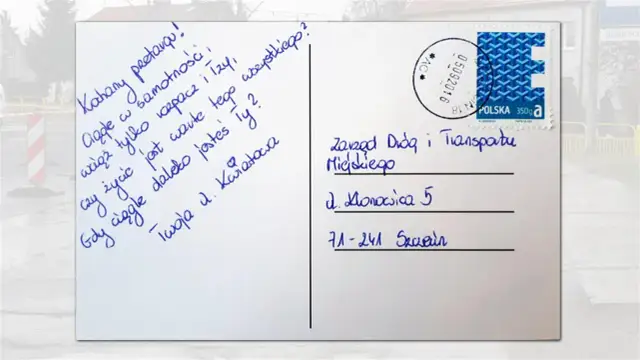 Kochany przetargu!
Ciągle w samotności,
wciąż tylko rozpacz i łzy,
czy życie jest warte tego wszystkiego?
Gdy ciągle daleko jesteś Ty?
Twoja ul. Kwiatowa
05092016
POLSKA 350g a
Zarząd Dróg i Transportu
Miejskiego
ul. Klonowica 5
71-241 Szczecin